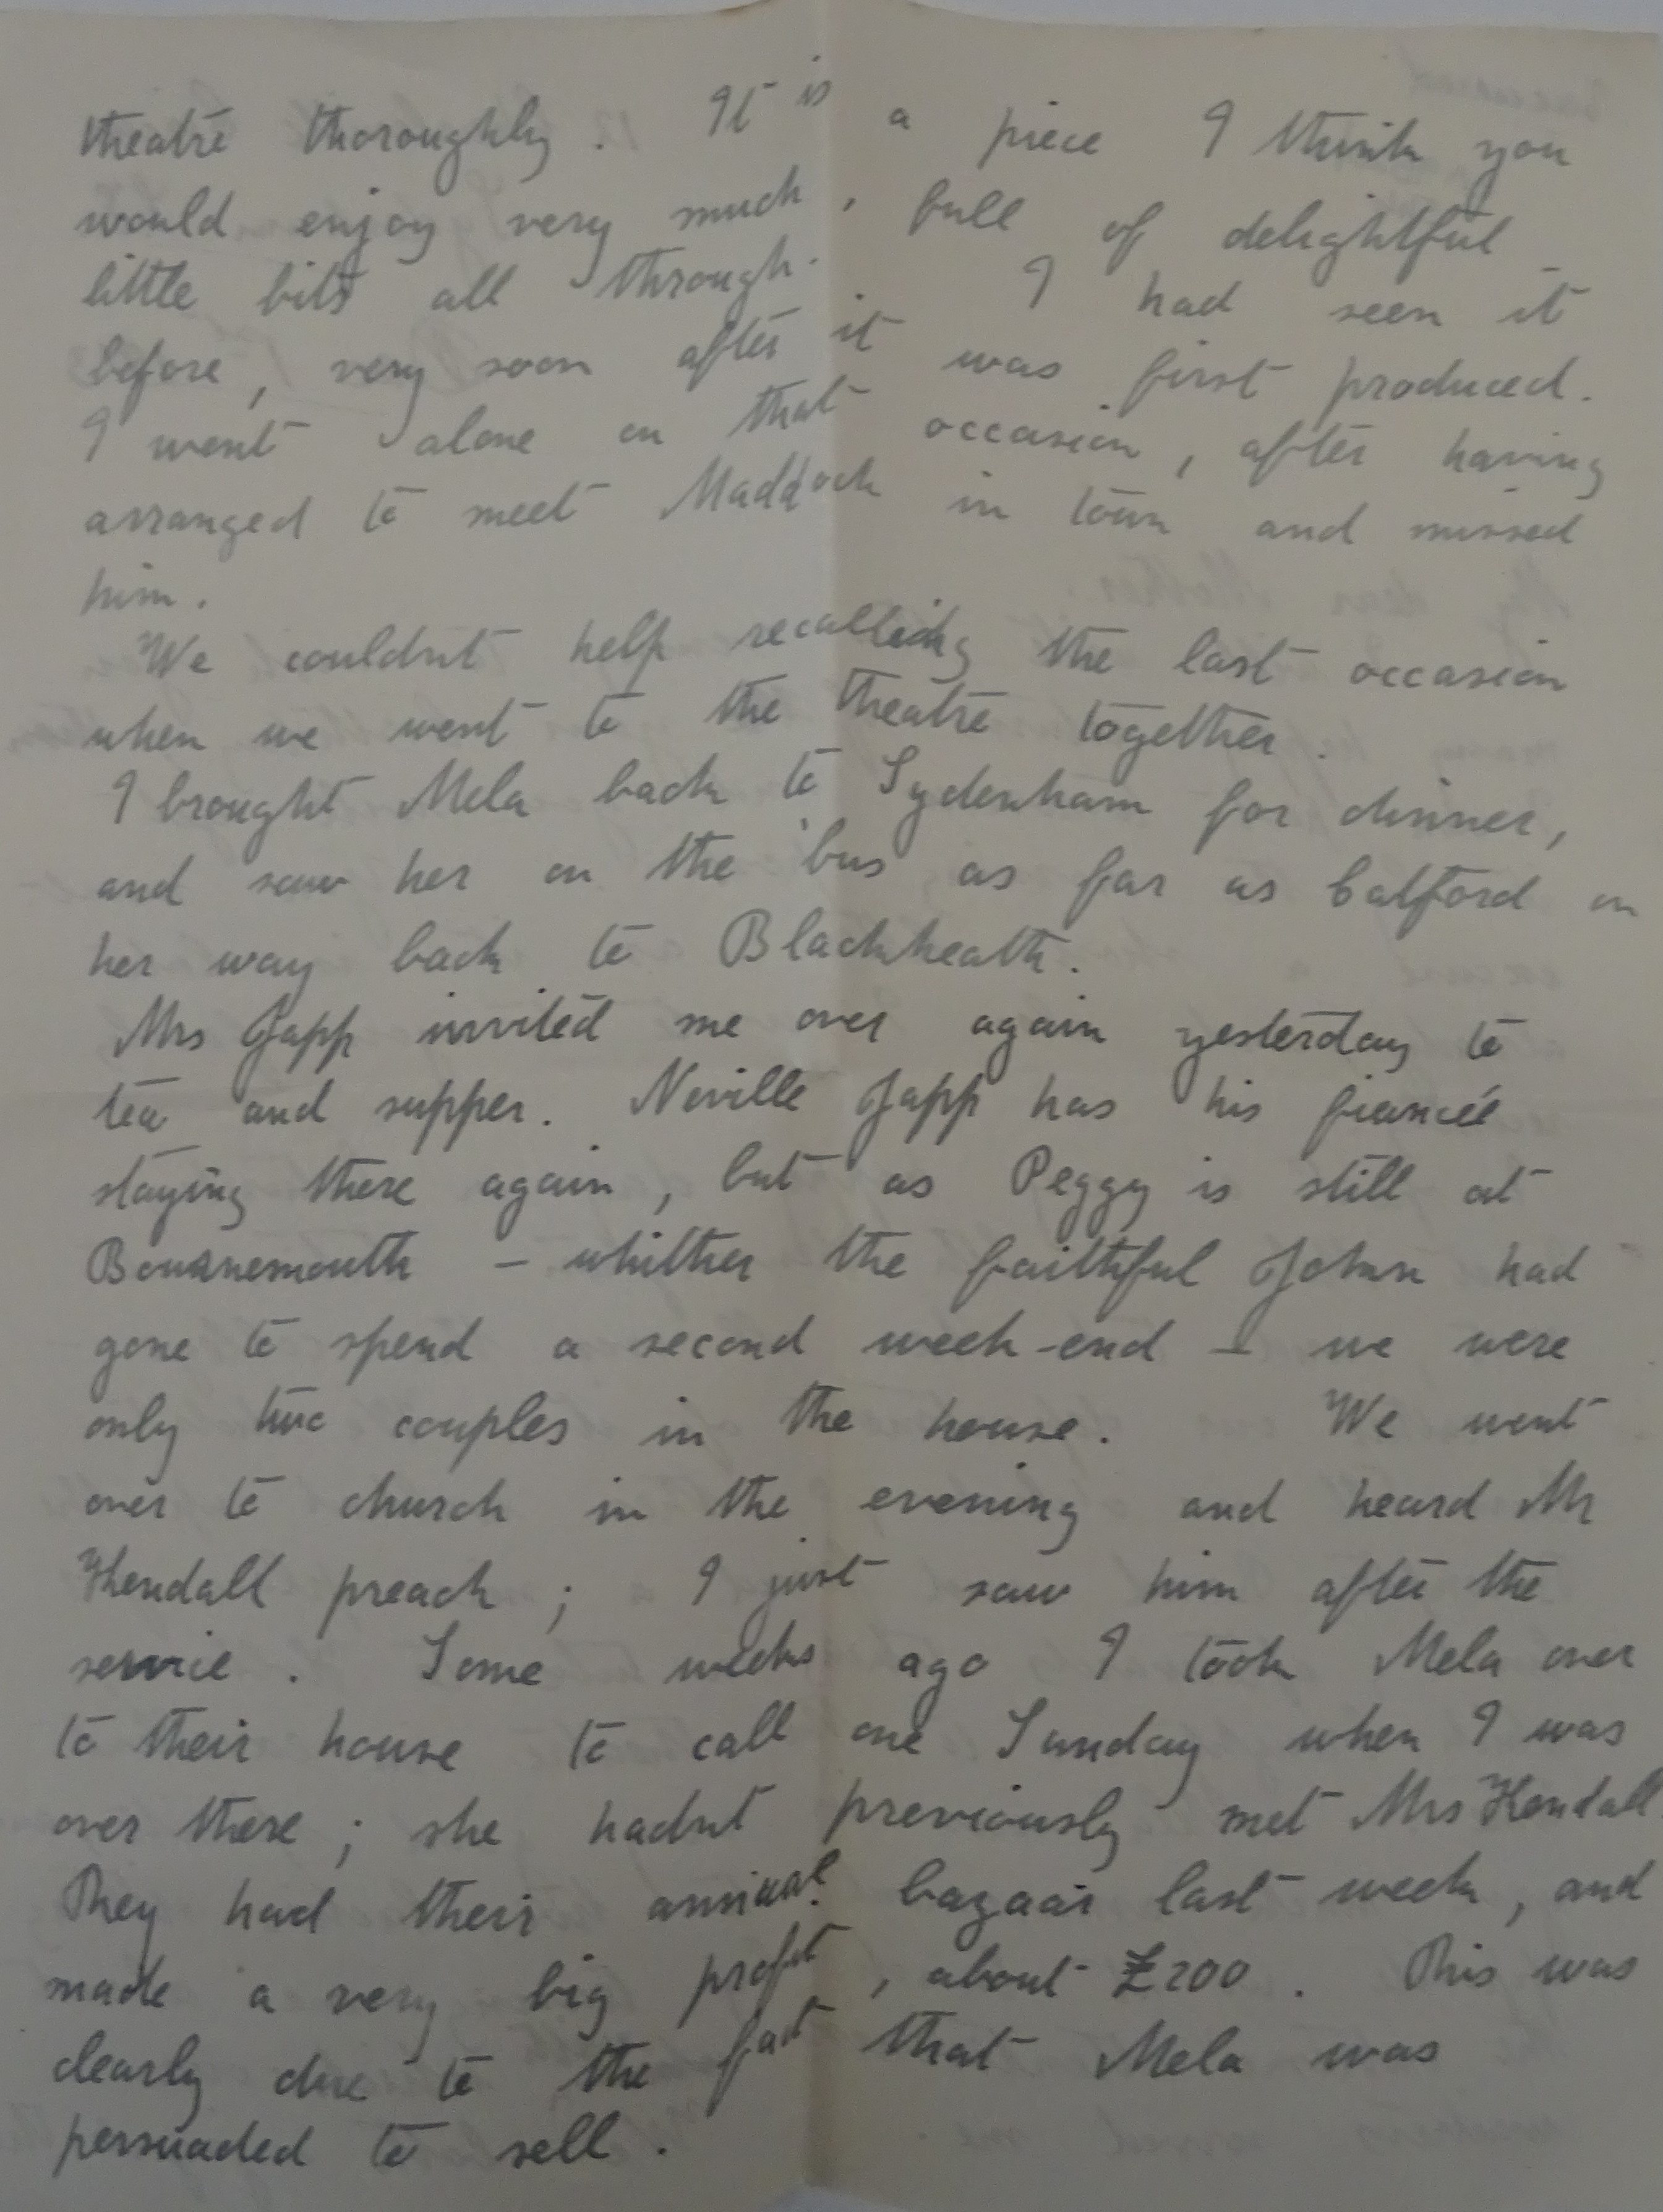 theatre thoroughly. It is a piece I think you
would enjoy very much, full of delightful
little bits all through. I had seen it
before, very soon after it was first produced.
I went alone on that occasion, after having
arranged to meet Maddock in town and missed
him.
We couldnt help recalling the last occasion
when we went to the theatre together.
I brought Mela back to Sydenham for dinner,
and saw her on the 'bus as far as Catford on
her way back to Blackheath.
Mrs Japp invited me over again yesterday to
tea and supper. Neville Japp has his fiancée
staying there again, but as Peggy is still at
Bournemouth – whither the faithful John had
gone to spend a second week-end – we were
only two couples in the house. We went
over to church in the evening and heard Mr
Kendall preach; I just saw him after the
service. Some weeks ago I took Mela over
to their house to call one Sunday when I was
over there; she hadnt previously met Mrs Kendall.
They had their annual bazaar last week, and
made a very big profit, about £200. This was
clearly due to the fact that Mela was
persuaded to sell.